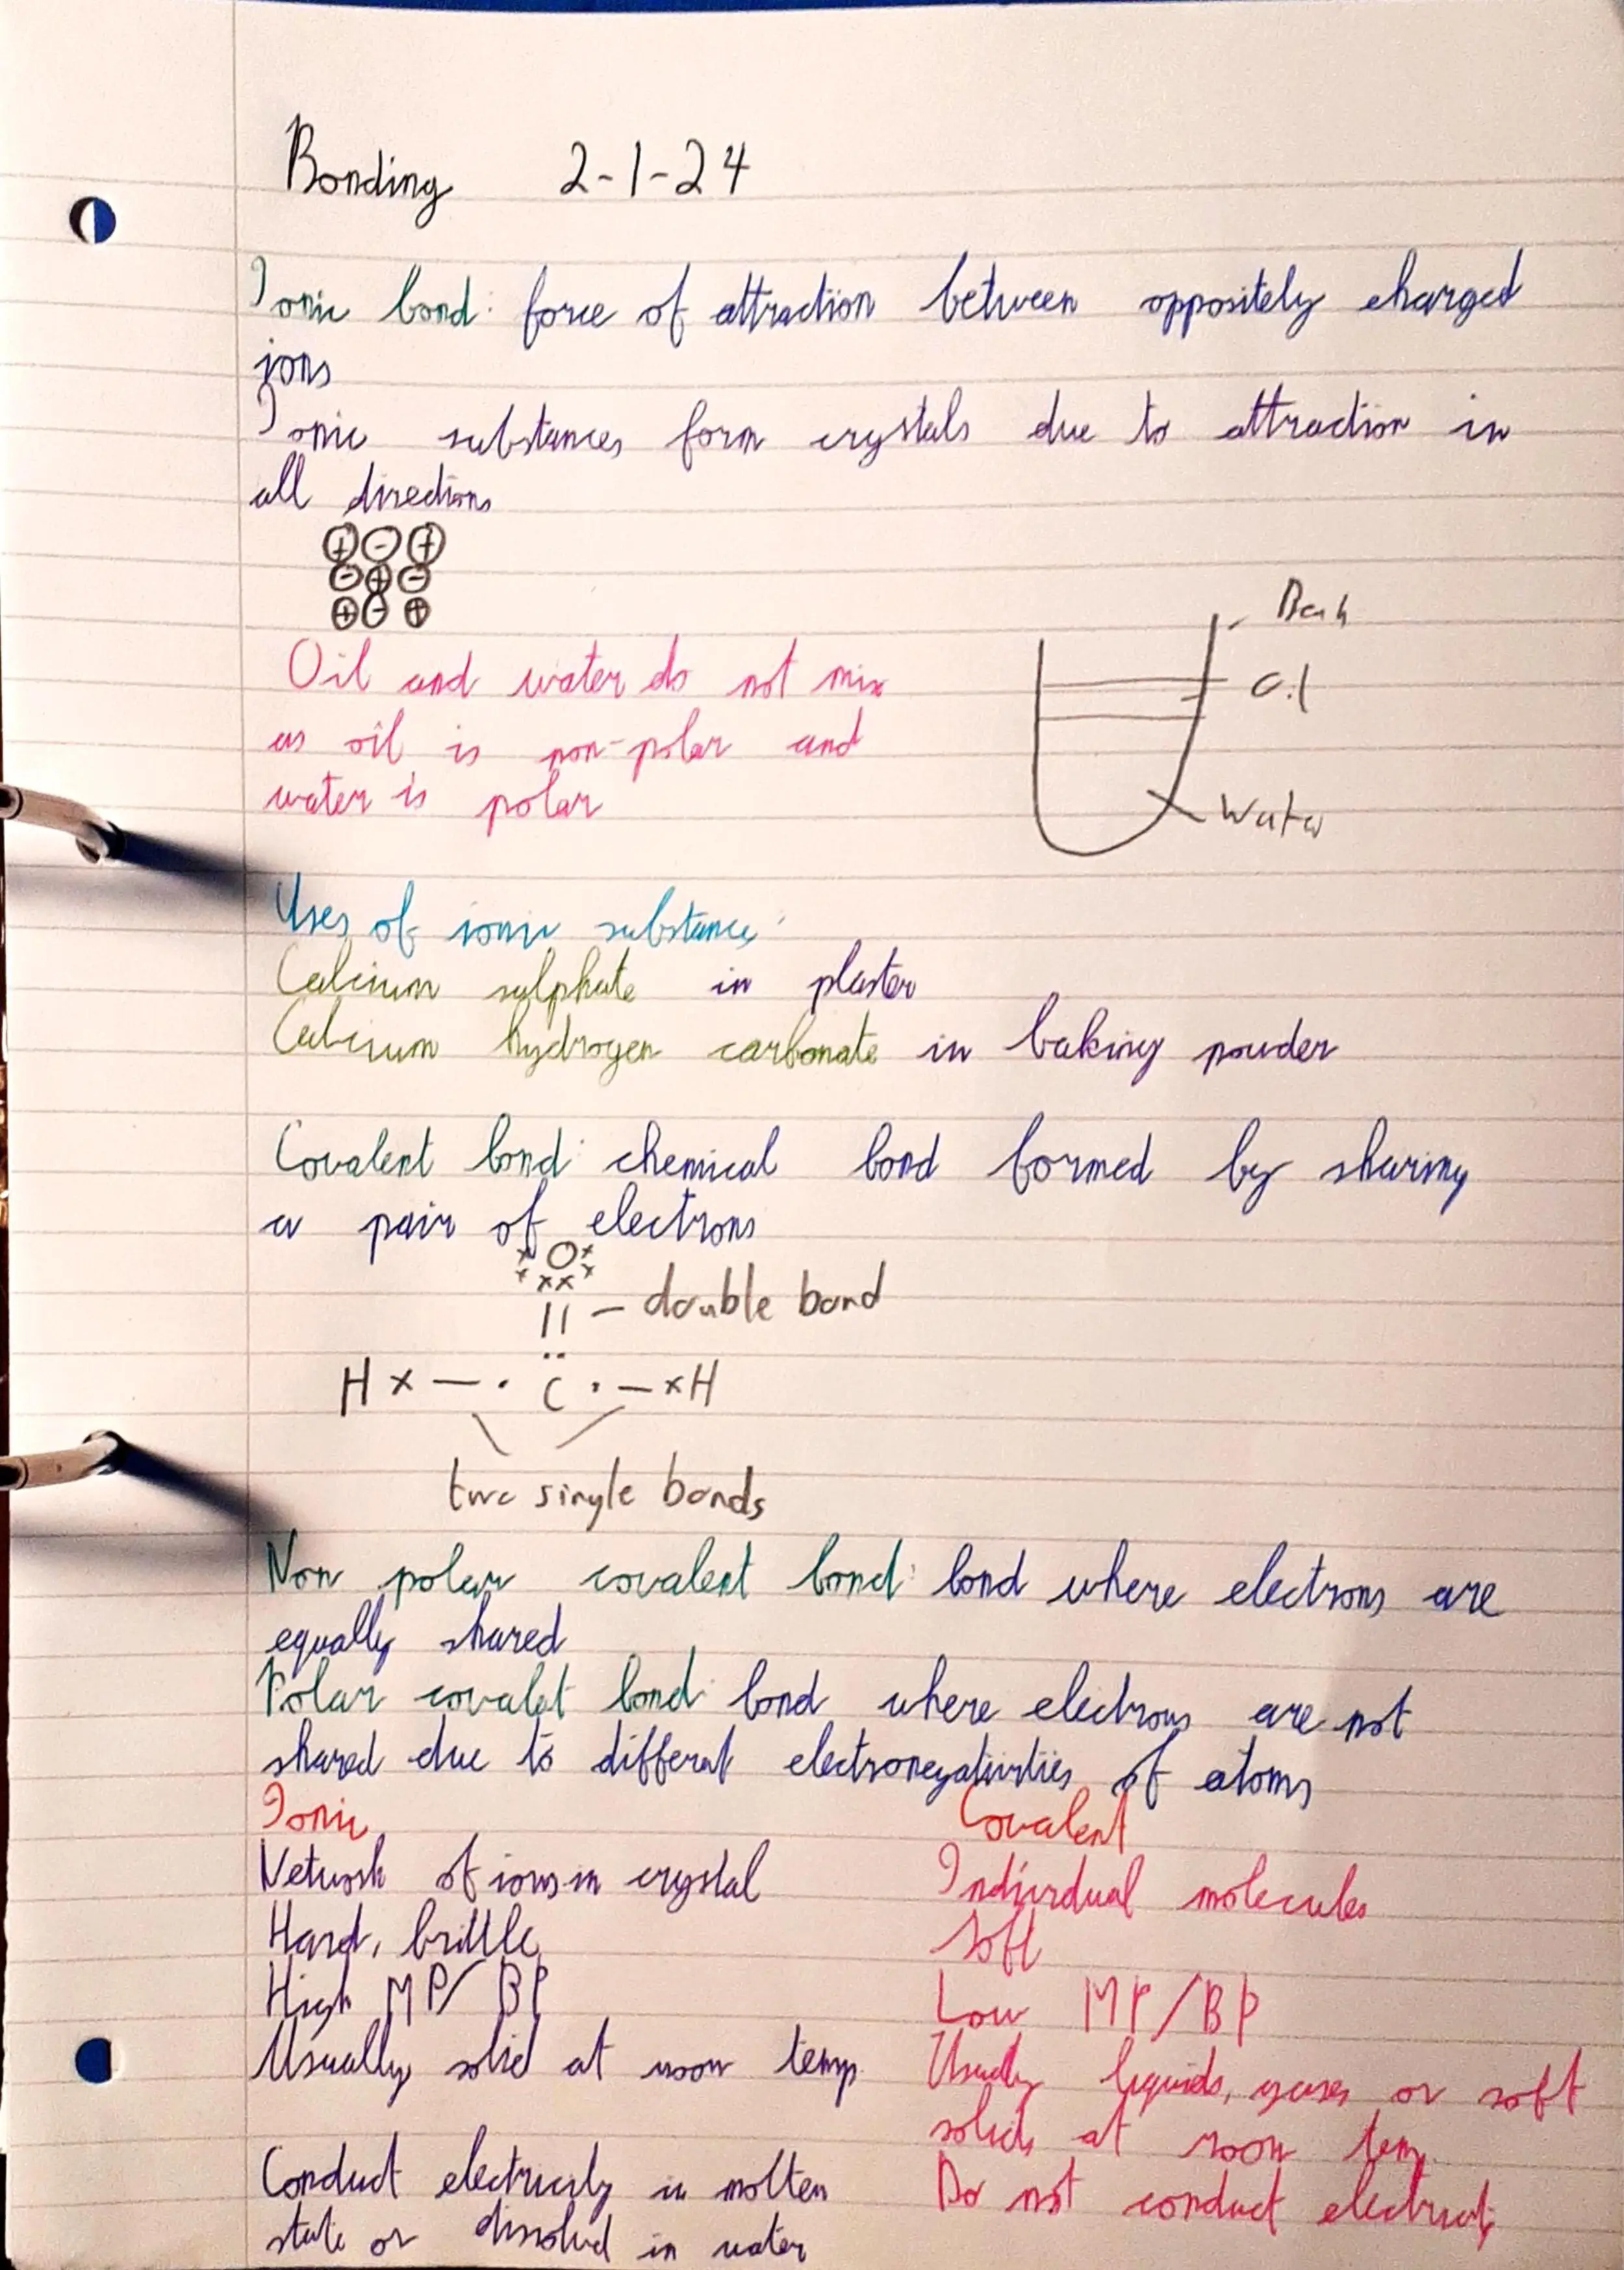 Bonding 2-1-24
Ionic bond: force of attraction between oppositely charged
ions
Ionic substances form crystals due to attraction in
all directions
+ - +
- + -
+ - +
Oil and water do not mix
as oil is non-polar and
water is polar
Oil
Water
Uses of ionic substances:
Calcium sulphate in plaster
Calcium hydrogen carbonate in baking powder
Covalent bond: chemical bond formed by sharing
a pair of electrons
x O x
x xx x
|| - double bond
..
H x — · C · — x H
two single bonds
Non polar covalent bond: bond where electrons are
equally shared
Polar covalet bond: bond where electrons are not
shared due to different electronegativities of atoms
Ionic Covalent
Network of ions in crystal Individual molecules
Hard, brittle Soft
High MP/BP Low MP/BP
Usually solid at room temp. Usually liquids, gases or soft
solids at room tem.
Conduct electricity in molten Do not conduct electricity
state or dissolved in water